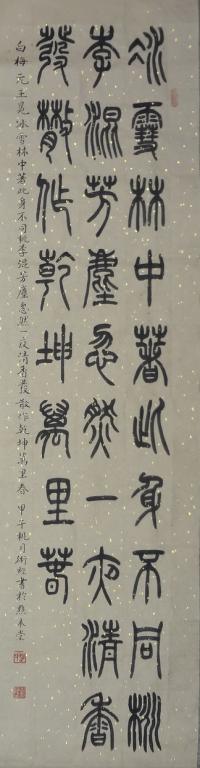 冰雪林中著此身不同桃
李混芳塵忽然一夜清香
發散作乾坤萬里春
白梅元王冕冰雪林中著此身不同桃李混芳塵忽然一夜清香發散作乾坤萬里春 甲午桃月衛經書於